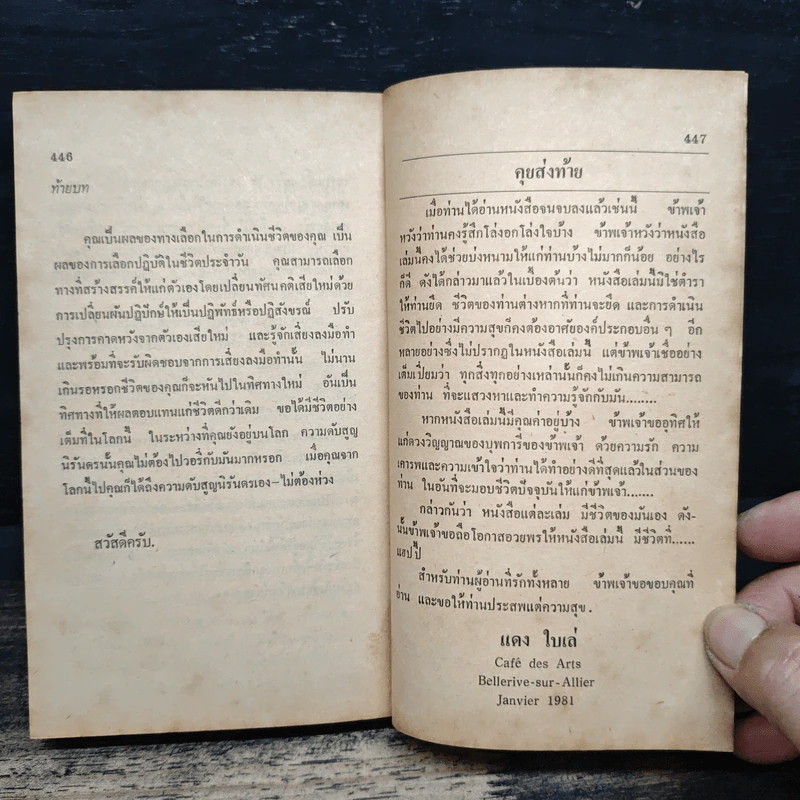 446
ท้ายบท
คุณเป็นผลของทางเลือกในการดำเนินชีวิตของคุณ เป็น
ผลของการเลือกปฏิบัติในชีวิตประจำวัน คุณสามารถเลือก
ทางที่สร้างสรรค์ให้แก่ตัวเองโดยเปลี่ยนทัศนคติเสียใหม่ด้วย
การเปลี่ยนผันปฏิปักษ์ให้เป็นปฏิพัทธ์หรือปฏิสังขรณ์ ปรับ
ปรุงการคาดหวังจากตัวเองเสียใหม่ และรู้จักเสี่ยงลงมือทำ
และพร้อมที่จะรับผิดชอบจากการเสี่ยงลงมือทำนั้น ไม่นาน
เกินรอหรอกชีวิตของคุณก็จะหันไปในทิศทางใหม่ อันเป็น
ทิศทางที่ให้ผลตอบแทนแก่ชีวิตดีกว่าเดิม ขอได้มีชีวิตอย่าง
เต็มที่ในโลกนี้ ในระหว่างที่คุณยังอยู่บนโลก ความดับสูญ
นิรันดรนั้นคุณไม่ต้องไปวอรี่กับมันมากหรอก เมื่อคุณจาก
โลกนี้ไปคุณก็ได้ถึงความดับสูญนิรันดรเอง-ไม่ต้องห่วง
สวัสดีครับ.
447
คุยส่งท้าย
เมื่อท่านได้อ่านหนังสือจนจบลงแล้วเช่นนี้ ข้าพเจ้า
หวังว่าท่านคงรู้สึกโล่งอกโล่งใจบ้าง ข้าพเจ้าหวังว่าหนังสือ
เล่มนี้คงได้ช่วยบ่งหนามให้แก่ท่านบ้างไม่มากก็น้อย อย่างไร
ก็ดี ดังได้กล่าวมาแล้วในเบื้องต้นว่า หนังสือเล่มนี้มิใช่ตำรา
ให้ท่านยึด ชีวิตของท่านต่างหากที่ท่านจะยึด และการดำเนิน
ชีวิตไปอย่างมีความสุขก็คงต้องอาศัยองค์ประกอบอื่น ๆ อีก
หลายอย่างซึ่งไม่ปรากฏในหนังสือเล่มนี้ แต่ข้าพเจ้าเชื่ออย่าง
เต็มเปี่ยมว่า ทุกสิ่งทุกอย่างเหล่านั้นก็คงไม่เกินความสามารถ
ของท่าน ที่จะแสวงหาและทำความรู้จักกับมัน........
หากหนังสือเล่มนี้มีคุณค่าอยู่บ้าง ข้าพเจ้าขออุทิศให้
แก่ดวงวิญญาณของบุพการีของข้าพเจ้า ด้วยความรัก ความ
เคารพและความเข้าใจว่าท่านได้ทำอย่างดีที่สุดแล้วในส่วนของ
ท่าน ในอันที่จะมอบชีวิตปัจจุบันให้แก่ข้าพเจ้า.......
กล่าวกันว่า หนังสือแต่ละเล่ม มีชีวิตของมันเอง ดัง-
นั้นข้าพเจ้าขอถือโอกาสอวยพรให้หนังสือเล่มนี้ มีชีวิตที่......
แฮปปี้
สำหรับท่านผู้อ่านที่รักทั้งหลาย ข้าพเจ้าขอขอบคุณที่
อ่าน และขอให้ท่านประสพแต่ความสุข.
แดง ใบเล่
Café des Arts
Bellerive-sur-Allier
Janvier 1981